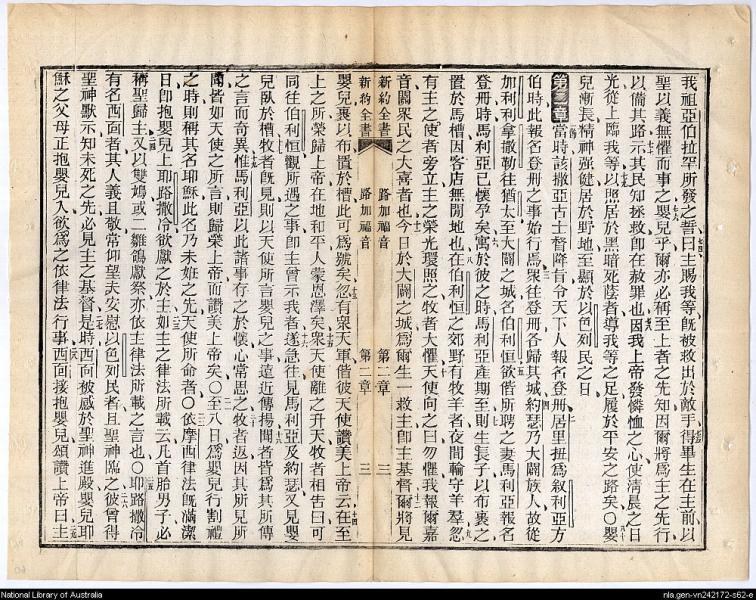 我祖亞伯拉罕所發之誓曰主賜我等旣被救出於敵手得畢生在主前以
聖以義無懼而事之嬰兒乎爾亦必稱至上者之先知因爾將爲主之先行
以備其路示其民知拯救卽在赦罪也因我上帝發憐恤之心使淸晨之日
光從上臨我等以照居於黑暗死蔭者導我等之足履於平安之路矣〇嬰
兒漸長精神强健居於野地至顯於以色列民之日
第二章當時該撒亞古士督降旨令天下人報名登冊居里扭爲敘利亞方
伯時此報名登冊之事始行焉衆往登冊各歸其城約瑟乃大闢族人故從
加利利拿撒勒往猶太至大闢之城名伯利恒欲偕所聘之妻馬利亞報名
登冊時馬利亞已懷孕矣寓於彼之時馬利亞產期至則生長子以布裹之
置於馬槽因客店無閒地也在伯利恒之郊野有牧羊者夜間輪守羊羣忽
有主之使者旁立主之榮光環照之牧者大懼天使向之曰勿懼我報爾嘉
音關衆民之大喜者也今日於大闢之城爲爾生一救主卽主基督爾將見
新約全書 路加福音 第二章 三
新約全書 路加福音 第二章 三
嬰兒裹以布置於槽此可爲號矣忽有衆天軍偕彼天使讚美上帝云在至
上之所榮歸上帝在地和平人蒙恩澤矣衆天使離之升天牧者相告曰可
同往伯利恒觀所遇之事卽主曾示我者遂急往見馬利亞及約瑟又見嬰
兒臥於槽牧者旣見則以天使所言嬰兒之事遠近傳揚聞者皆爲其所傳
之言而奇異惟馬利亞以此諸事存之於懷心常思之牧者返因其所見所
聞皆如天使之所言則歸榮上帝而讚美上帝矣〇至八日爲嬰兒行割禮
之時則稱其名耶穌此名乃未姙之先天使所命者〇依摩西律法旣滿潔
日卽抱嬰兒上耶路撒冷欲獻之於主如主之律法所載云凡首胎男子必
稱聖歸主又以雙鳩或二雛鴿獻祭亦依主律法所載之言也〇耶路撒冷
有名西面者其人義且敬常仰望夫安慰以色列民者且聖神臨之彼曾得
聖神默示知未死之先必見主之基督是時西面被感於聖神進殿嬰兒耶
穌之父母正抱嬰兒入欲爲之依律法行事西面接抱嬰兒頌讚上帝曰主
National Library of Australia
nla.gen-vn242172-s62-e